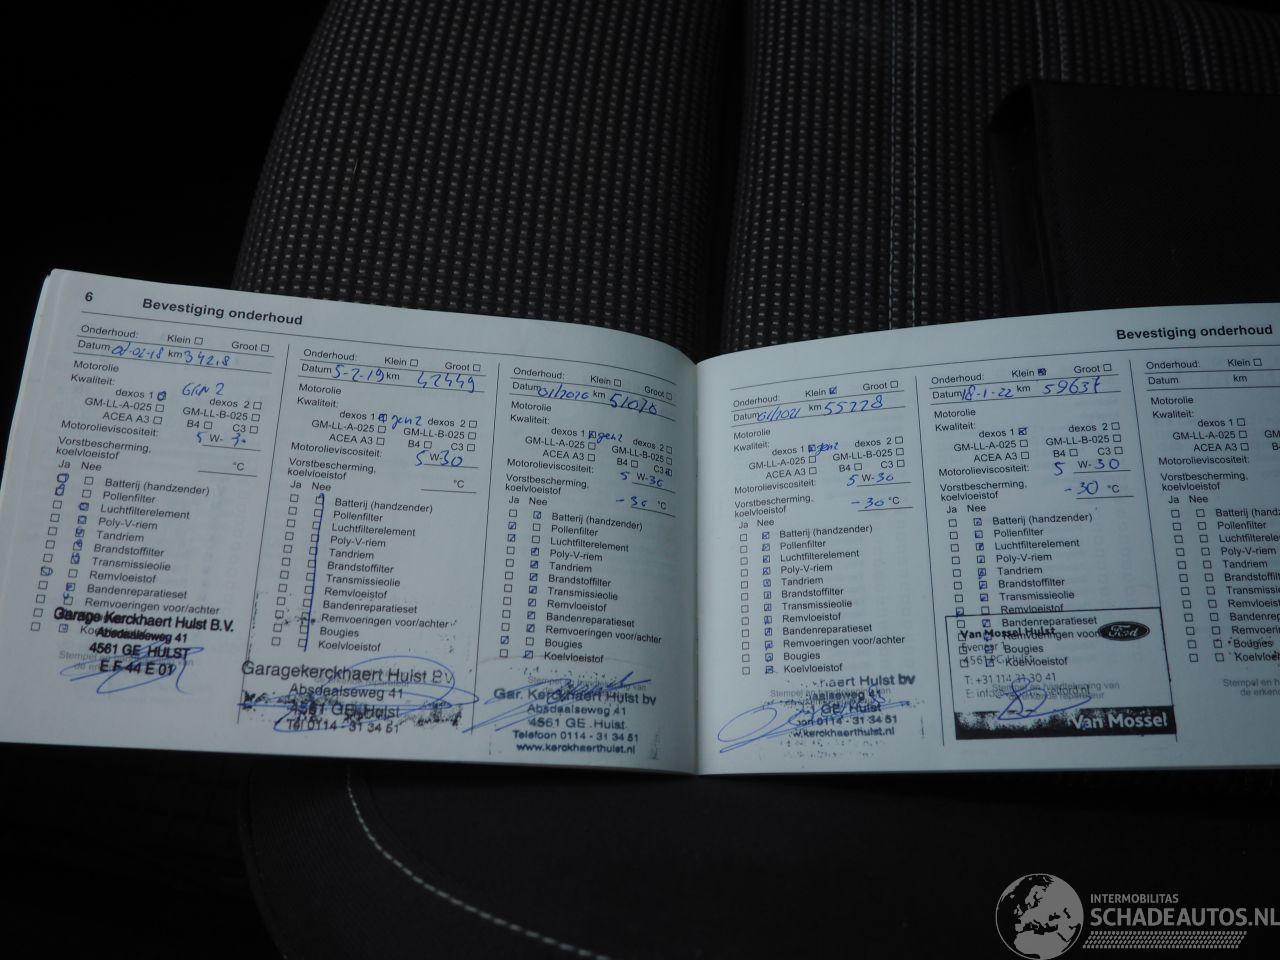 6 Bevestiging onderhoud
Onderhoud: Klein Groot
Datum 01-02-18 km 34218
Motorolie
Kwaliteit: GEN 2
dexos 1 dexos 2
GM-LL-A-025 GM-LL-B-025
ACEA A3 B4 C3
Motorolieviscositeit: 5 W- 30
Vorstbescherming,
koelvloeistof °C
Ja Nee
Batterij (handzender)
Pollenfilter
Luchtfilterelement
Poly-V-riem
Tandriem
Brandstoffilter
Transmissieolie
Remvloeistof
Bandenreparatieset
Remvoeringen voor/achter
Garage Kerckhaert Hulst B.V.
Absdaalseweg 41
4561 GE HULST
E F 44 E 01
Onderhoud: Klein Groot
Datum 5-2-19 km 42449
Motorolie
Kwaliteit:
dexos 1 gen 2 dexos 2
GM-LL-A-025 GM-LL-B-025
ACEA A3 B4 C3
Motorolieviscositeit: 5 W-30
Vorstbescherming,
koelvloeistof °C
Ja Nee
Batterij (handzender)
Pollenfilter
Luchtfilterelement
Poly-V-riem
Tandriem
Brandstoffilter
Transmissieolie
Remvloeistof
Bandenreparatieset
Remvoeringen voor/achter
Bougies
Koelvloeistof
Garagekerckhaert Hulst BV
Absdaalseweg 41
4561 GE Hulst
Tel 0114 - 31 34 51
Onderhoud: Klein Groot
Datum 01/2020 km 51020
Motorolie
Kwaliteit:
dexos 1 gen2 dexos 2
GM-LL-A-025 GM-LL-B-025
ACEA A3 B4 C3
Motorolieviscositeit: 5 W-30
Vorstbescherming,
koelvloeistof -30 °C
Ja Nee
Batterij (handzender)
Pollenfilter
Luchtfilterelement
Poly-V-riem
Tandriem
Brandstoffilter
Transmissieolie
Remvloeistof
Bandenreparatieset
Remvoeringen voor/achter
Bougies
Koelvloeistof
Gar. Kerckhaert Hulst bv
Absdaalseweg 41
4561 GE Hulst
Telefoon 0114 - 31 34 51
www.kerckhaerthulst.nl
Bevestiging onderhoud
Onderhoud: Klein Groot
Datum 01/2021 km 55228
Motorolie
Kwaliteit:
dexos 1 gen2 dexos 2
GM-LL-A-025 GM-LL-B-025
ACEA A3 B4 C3
Motorolieviscositeit: 5 W-30
Vorstbescherming,
koelvloeistof -30 °C
Ja Nee
Batterij (handzender)
Pollenfilter
Luchtfilterelement
Poly-V-riem
Tandriem
Brandstoffilter
Transmissieolie
Remvloeistof
Bandenreparatieset
Remvoeringen voor/achter
Bougies
Koelvloeistof
haert Hulst bv
aalseweg 41
1 GE Hulst
oon 0114 - 31 34 51
w.kerckhaerthulst.nl
Onderhoud: Klein Groot
Datum 18-1-22 km 59637
Motorolie
Kwaliteit:
dexos 1 dexos 2
GM-LL-A-025 GM-LL-B-025
ACEA A3 B4 C3
Motorolieviscositeit: 5 W-30
Vorstbescherming,
koelvloeistof -30 °C
Ja Nee
Batterij (handzender)
Pollenfilter
Luchtfilterelement
Poly-V-riem
Tandriem
Brandstoffilter
Transmissieolie
Remvloeistof
Bandenreparatieset
Remvoeringen voor/
Bougies
Koelvloeistof
Van Mossel Hulst
Ford
T: +31 114 31 30 41
Van Mossel
Onderhoud: Klein
Datum km
Motorolie
Kwaliteit:
dexos 1
GM-LL-A-025
ACEA A3
Motorolieviscositeit:
Vorstbescherming,
koelvloeistof
Ja Nee
Batterij (hand
Pollenfilter
Luchtfilterele
Poly-V-riem
Tandriem
Brandstoffilt
Transmissie
Remvloeist
Bandenrep
Remvoerin
Bougies
Koelvloei
INTERMOBILITAS
SCHADEAUTOS.NL